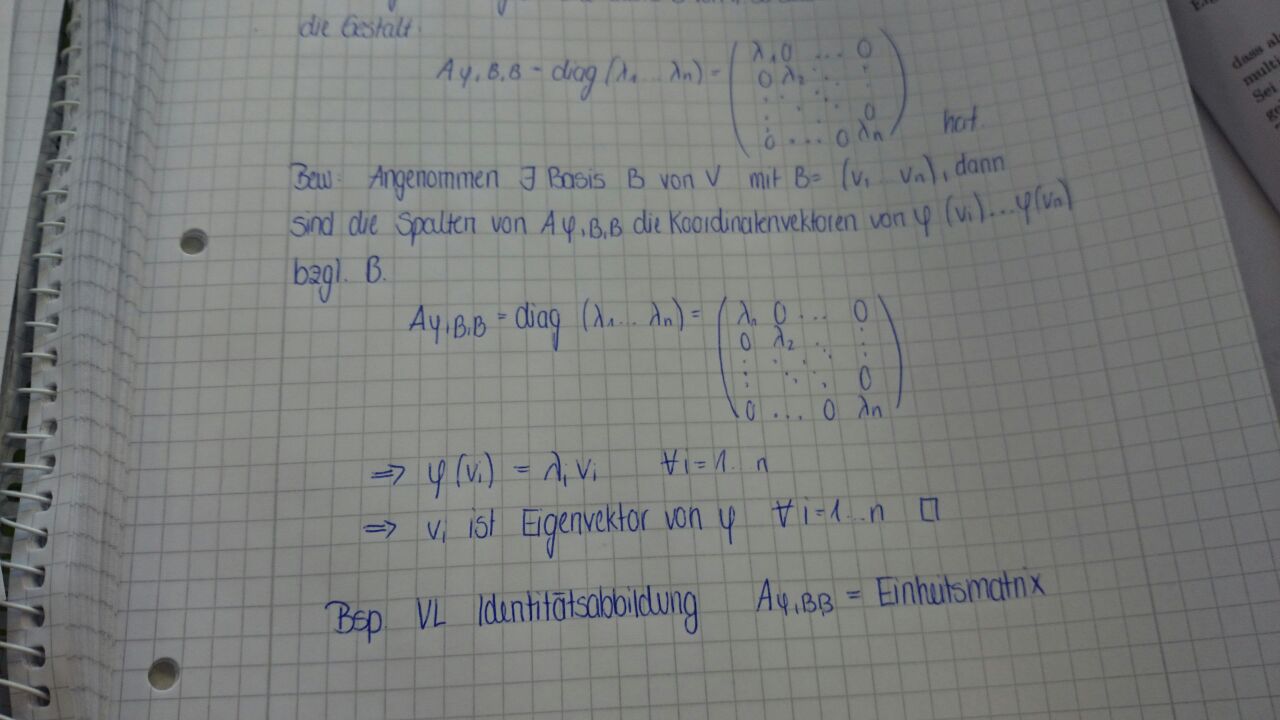 die Gestalt.
Aφ,B,B = diag (λ1 ... λn) = ( λ1 0 ... 0
0 λ2 ⋱ ⋮
⋮ ⋱ ⋱ 0
0 ... 0 λn ) hat.
Bew: Angenommen ∃ Basis B von V mit B= (v1 ... vn), dann
sind die Spalten von Aφ,B,B die Koordinatenvektoren von φ (v1)...φ(vn)
bzgl. B.
Aφ,B,B = diag (λ1 ... λn) = ( λ1 0 ... 0
0 λ2 ⋱ ⋮
⋮ ⋱ ⋱ 0
0 ... 0 λn )
⇒ φ(vi) = λi vi ∀i=1...n
⇒ vi ist Eigenvektor von φ ∀ i=1...n □
Bsp VL Identitätsabbildung Aφ,BB = Einheitsmatrix
dass al
multi
Sei